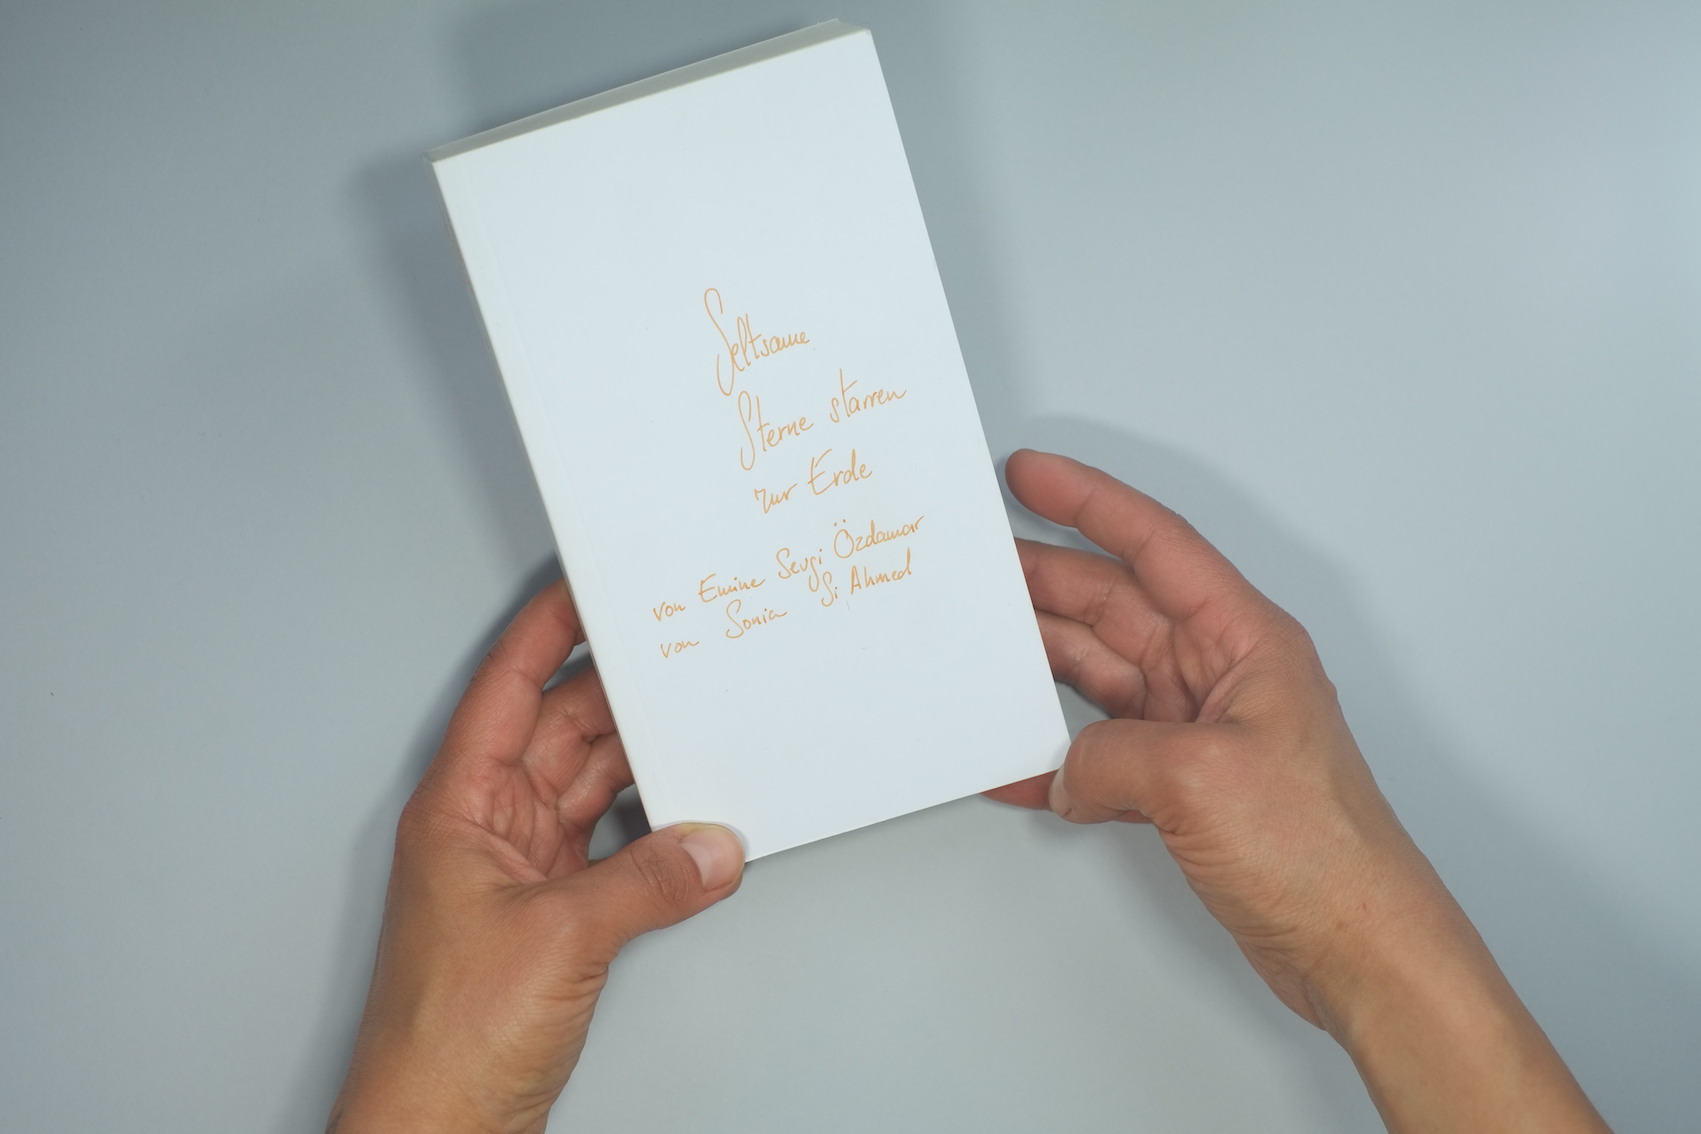 Seltsame
Sterne starren
zur Erde
von Emine Sevgi Özdamar
von Sonia Si Ahmed